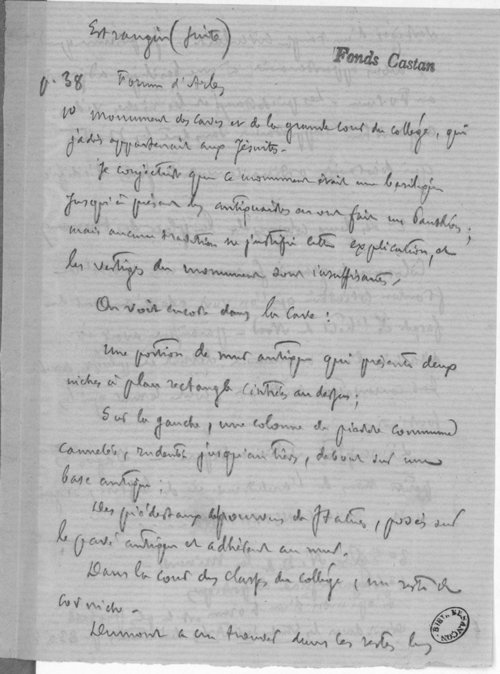 Estrangin (suite)
Fonds Castan
p. 38 Forum d'Arles
1º monument des caves et de la grande cour du collége, qui
jadis appartenait aux Jésuites.
Je conjecture que ce monument était une basilique
Jusqu'à présent les antiquaires en ont fait un Panthéon;
mais aucune tradition ne justifie cette explication, et
les vestiges du monument sont insuffisants.
On voit encore dans la cave:
Une portion de mur antique qui présente deux
niches à plan rectangle cintrées au dessus;
Sur la gauche, une colonne de pierre commune
cannelée, rudentée jusqu'au tiers, debout sur une
base antique;
Des piédestaux dépourvus de statues, posés sur
le pavé antique et adhérant au mur.
Dans la cour des classes du collége, un reste de
corniche.
Dumont a cru trouver dans les restes les
BIBL. BESANÇON